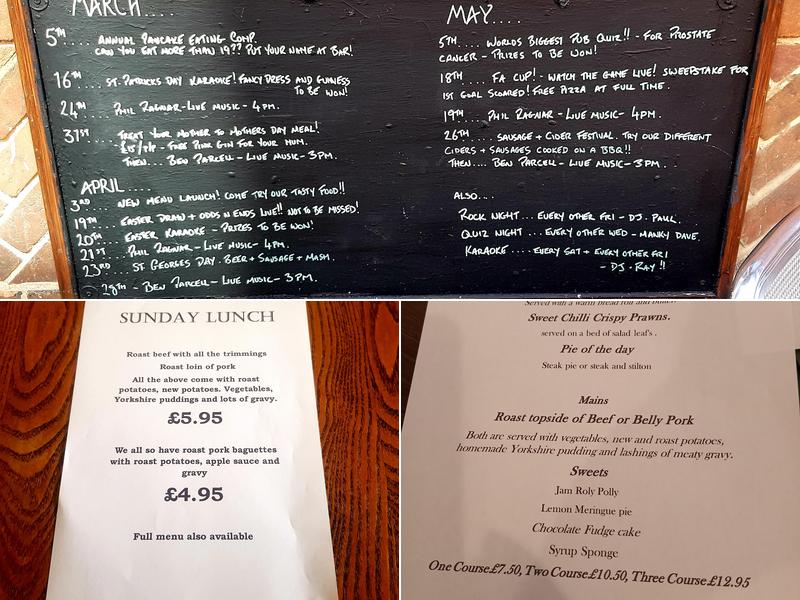 MARCH....
5TH.... ANNUAL PANCAKE EATING COMP.
CAN YOU EAT MORE THAN 19?? PUT YOUR NAME AT BAR!
16TH.... ST. PATRICKS DAY KARAOKE! FANCY DRESS AND GUINESS
TO BE WON!
24TH.... PHIL RAGNAR-LIVE MUSIC - 4PM.
31ST.... TREAT YOUR MOTHER TO MOTHERS DAY MEAL!
- FREE PINK GIN FOR YOUR MUM.
THEN.... BEN PARCELL - LIVE MUSIC - 3PM.
APRIL....
3RD.... NEW MENU LAUNCH! COME TRY OUR TASTY FOOD!!
19TH.... EASTER DRAW + ODDS N ENDS LIVE!! NOT TO BE MISSED!
20TH.... EASTER KARAOKE - PRIZES TO BE WON!
21ST.... PHIL RAGNAR - LIVE MUSIC - 4PM.
23RD.... ST GEORGES DAY. BEER + SAUSAGE + MASH.
28TH - BEN PARCELL - LIVE MUSIC - 3PM.
MAY....
5TH.... WORLDS BIGGEST PUB QUIZ!! - FOR PROSTATE
CANCER - PRIZES TO BE WON!
18TH.... FA CUP! - WATCH THE GAME LIVE! SWEEPSTAKE FOR
1ST GOAL SCORED! FREE PIZZA AT FULL TIME.
19TH.... PHIL RAGNAR - LIVE MUSIC - 4PM.
26TH.... SAUSAGE + CIDER FESTIVAL. TRY OUR DIFFERENT
CIDERS + SAUSAGES COOKED ON A BBQ!!
THEN.... BEN PARCELL - LIVE MUSIC - 3PM.
ALSO....
ROCK NIGHT... EVERY OTHER FRI - DJ. PAUL.
QUIZ NIGHT... EVERY OTHER WED - MANKY DAVE.
KARAOKE.... EVERY SAT + EVERY OTHER FRI
- DJ. RAY!!
SUNDAY LUNCH
Roast beef with all the trimmings
Roast loin of pork
All the above come with roast
potatoes, new potatoes. Vegetables,
Yorkshire puddings and lots of gravy.
£5.95
We all so have roast pork baguettes
with roast potatoes, apple sauce and
gravy
£4.95
Full menu also available
Served with a warm bread roll and butter.
Sweet Chilli Crispy Prawns.
served on a bed of salad leaf's .
Pie of the day
Steak pie or steak and stilton
Mains
Roast topside of Beef or Belly Pork
Both are served with vegetables, new and roast potatoes,
homemade Yorkshire pudding and lashings of meaty gravy.
Sweets
Jam Roly Polly
Lemon Meringue pie
Chocolate Fudge cake
Syrup Sponge
One Course£7.50, Two Course£10.50, Three Course£12.95